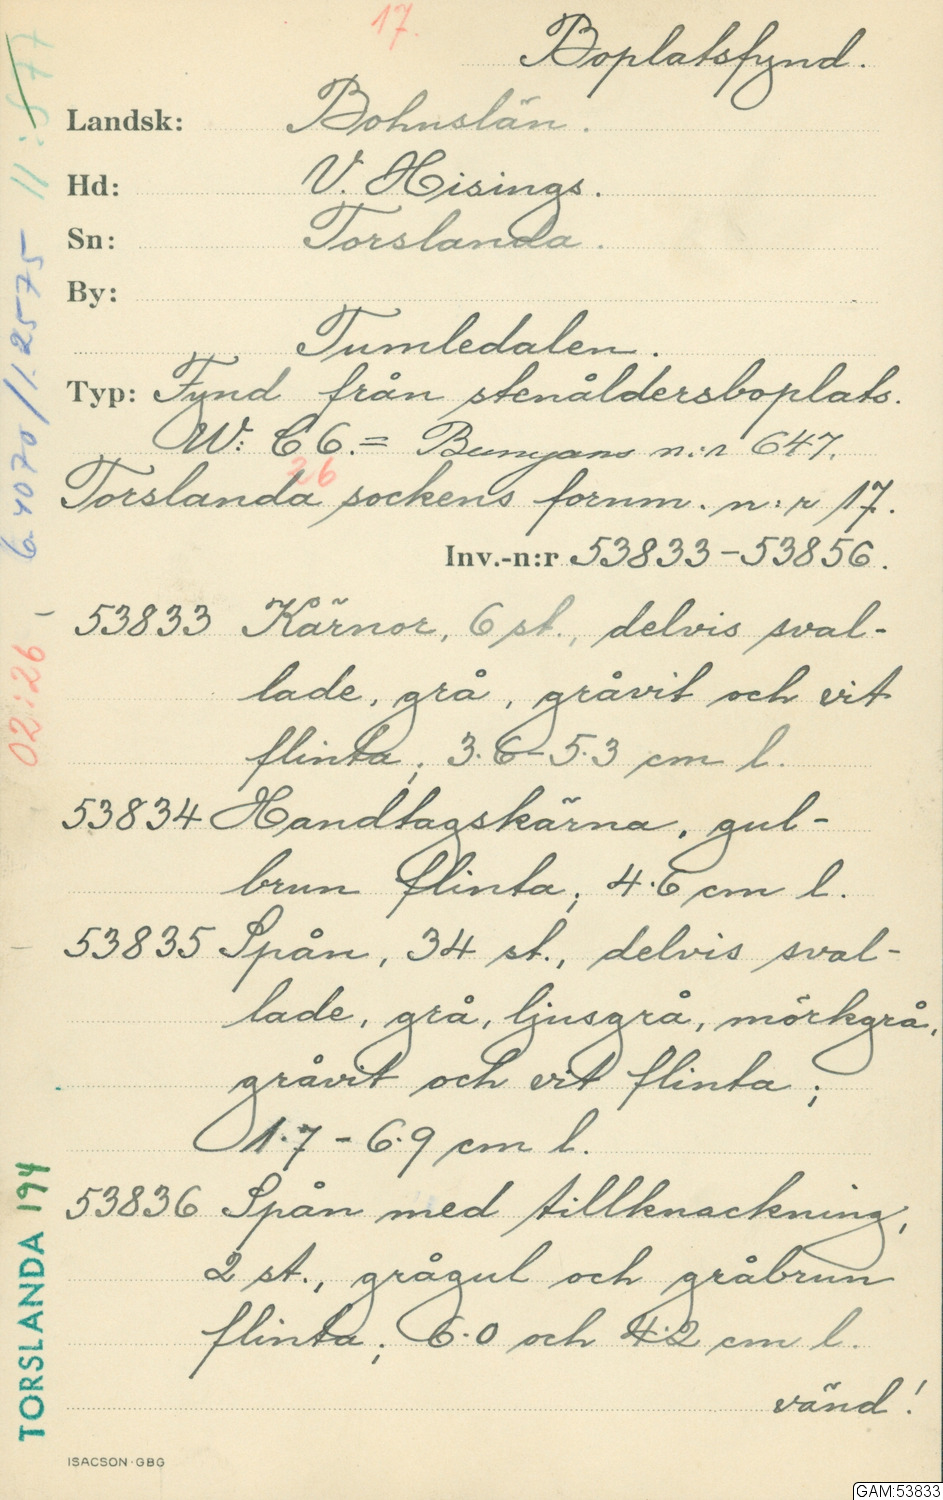 17.
Boplatsfynd.
Landsk: Bohuslän.
Hd: V. Hisings.
Sn: Torslanda.
By:
Tumledalen.
Typ: Fynd från stenåldersboplats.
W: C 6. = Bunyans n:r 647.
26
Torslanda sockens fornm. n:r 17.
Inv.-n:r 53833-53856.
53833 Kärnor, 6 st., delvis sval-
lade, grå, gråvit och vit
flinta; 3.6-5.3 cm l.
53834 Handtagskärna, gul-
brun flinta; 4.6 cm l.
53835 Spån, 34 st., delvis sval-
lade, grå, ljusgrå, mörkgrå,
gråvit och vit flinta;
1.7-6.9 cm l.
53836 Spån med tillknackning,
2 st., grågul och gråbrun
flinta; 6.0 och 4.2 cm l.
vänd!
ISACSON·GBG
TORSLANDA 194
02:26
6.4070/1.2575
GAM:53833